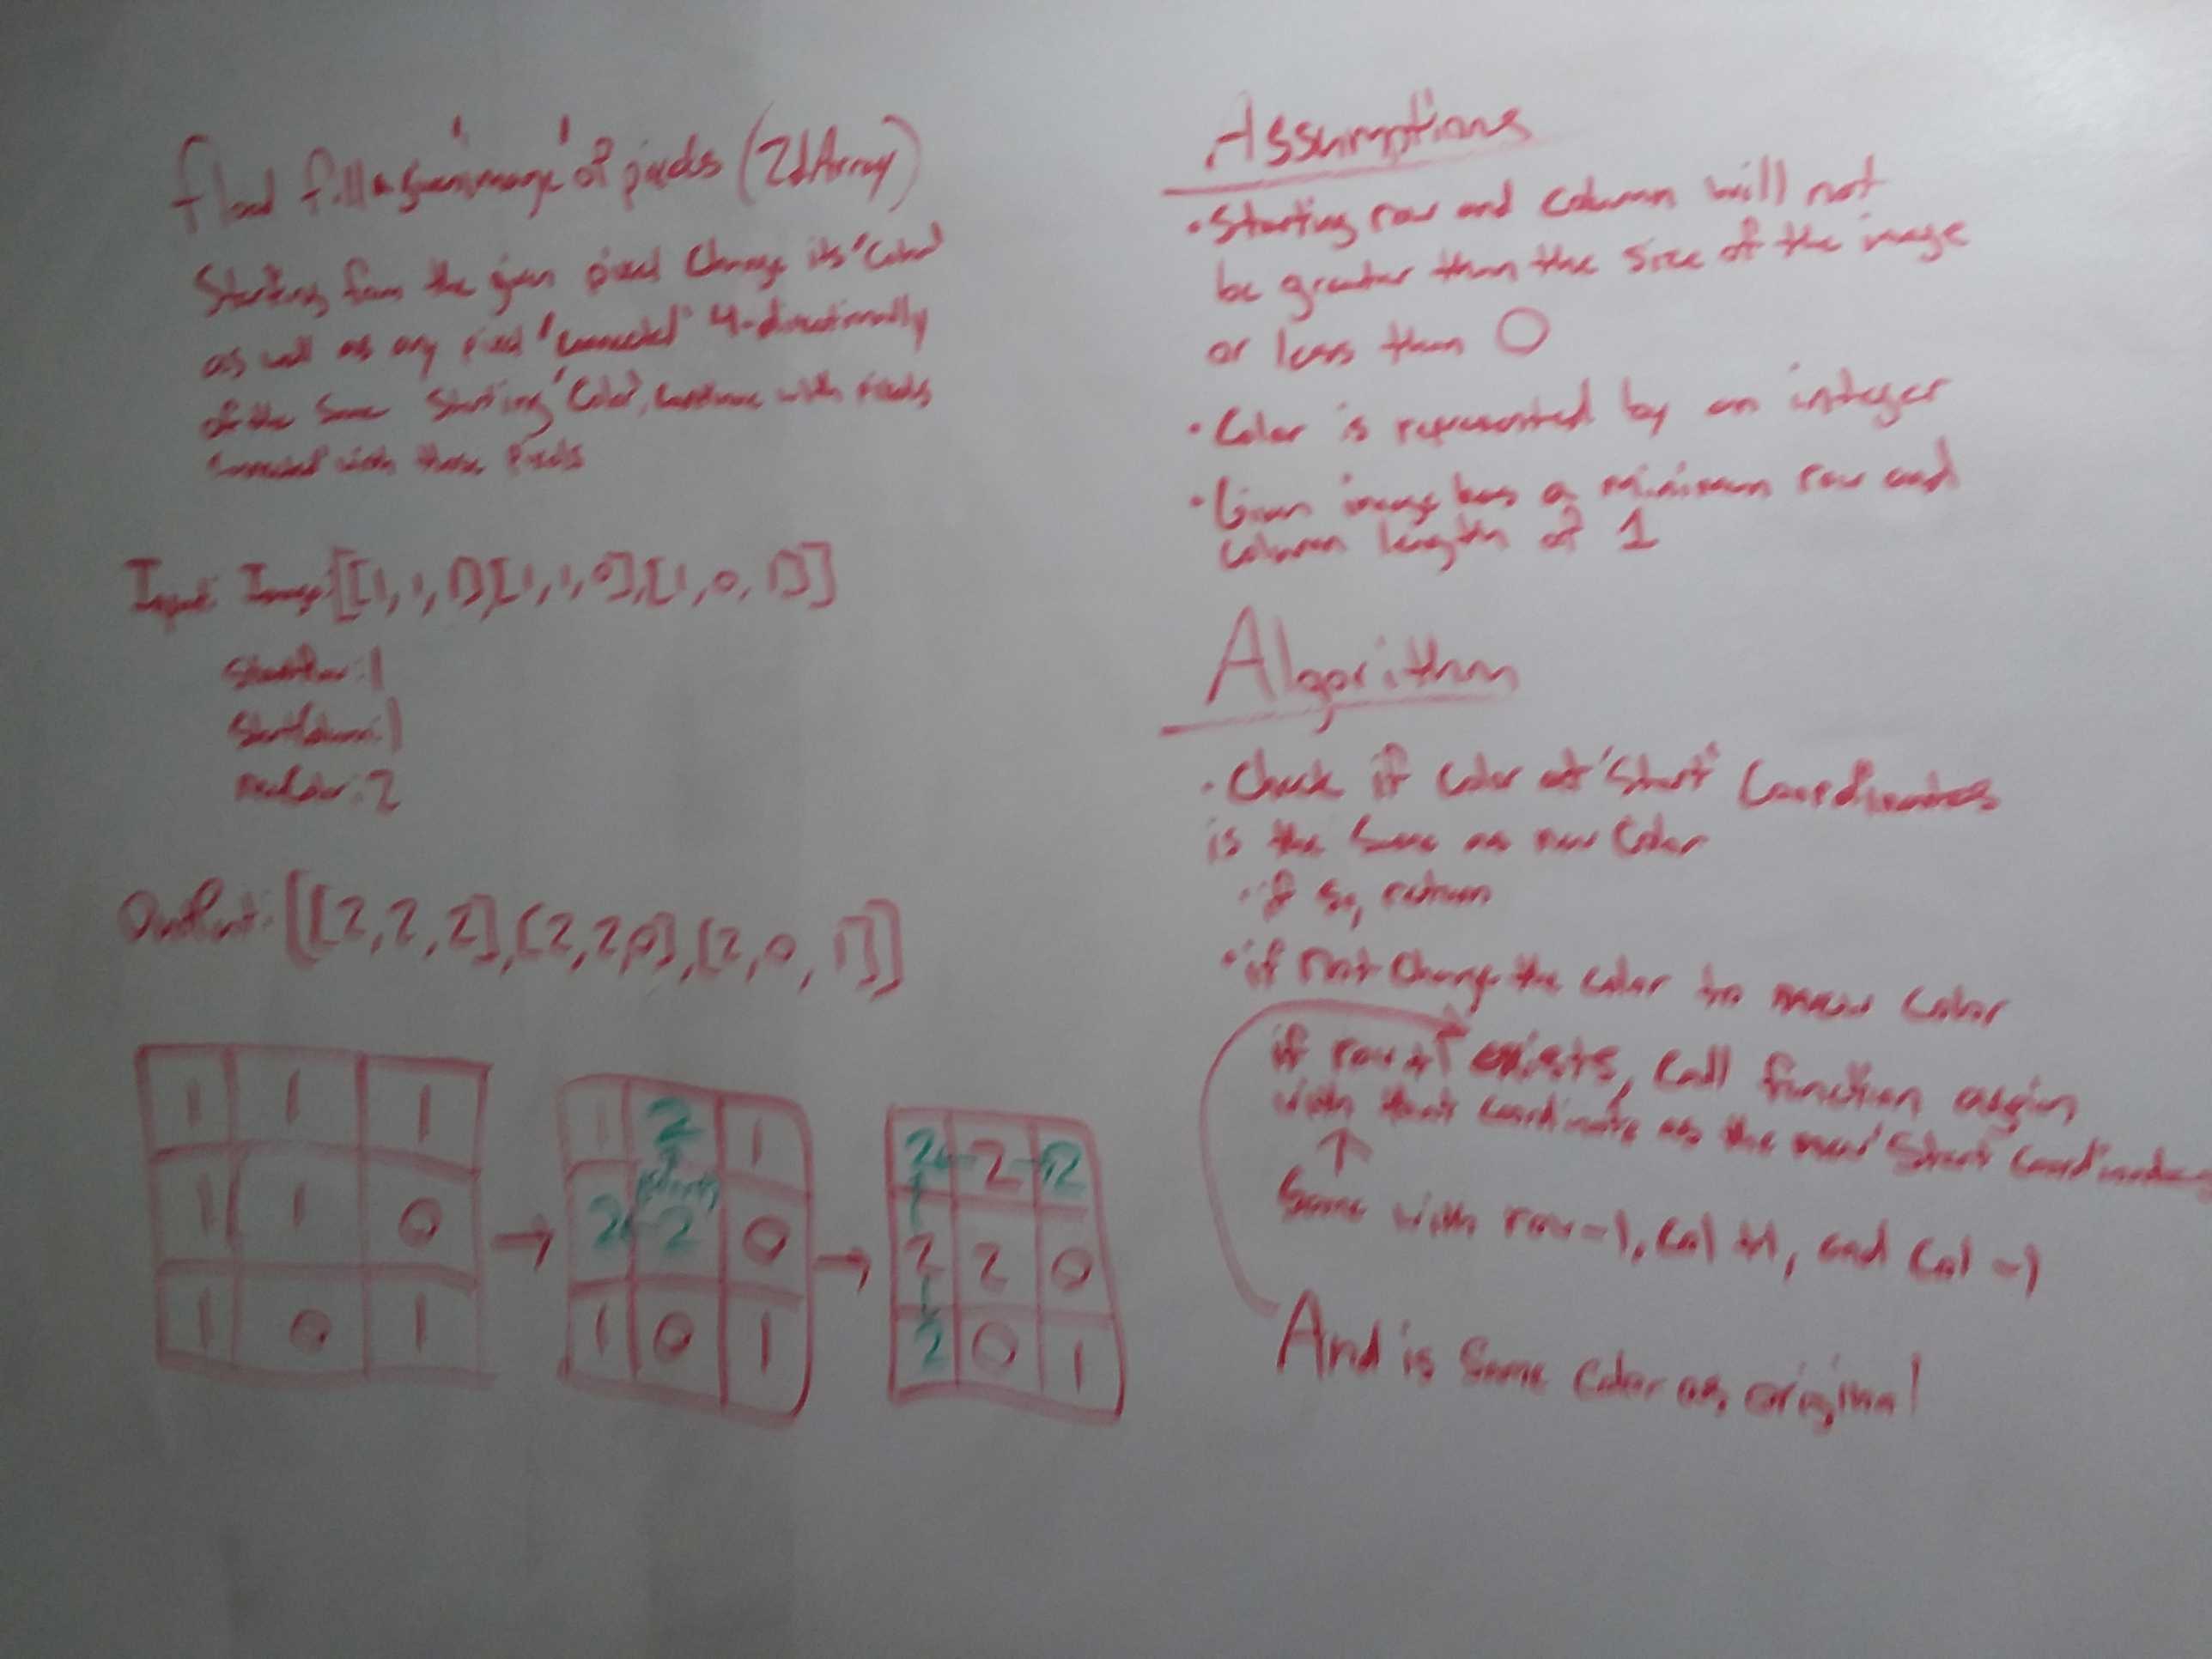 flood fill a given 'image' of pixels (2dArray)
Starting from the given pixel Change its 'Color'
as well as any pixel 'connected' 4-directionally
of the Same Starting 'Color', continue with pixels
connected with those pixels
Input: Image:[[1,1,1],[1,1,0],[1,0,1]]
StartRow:1
StartColumn:1
newColor:2
OutPut:[[2,2,2],[2,2,0],[2,0,1]]
1 1 1
1 1 0
1 0 1
1 2 1
(start)
2 2 0
1 0 1
2 2 2
2 2 0
2 0 1
Assumptions
• Starting row and column will not
be greater than the size of the image
or less than 0
• Color is represented by an integer
• Given image has a minimum row and
column length of 1
Algorithm
• Check if color at 'Start' Coordinates
is the Same as new Color
• if so, return
• if not Change the color to new Color
if row+1 exists, Call function again
with that coordinate as the new 'Start' Coordinates
Same with row-1, Col+1, and Col-1
And is Same Color as original